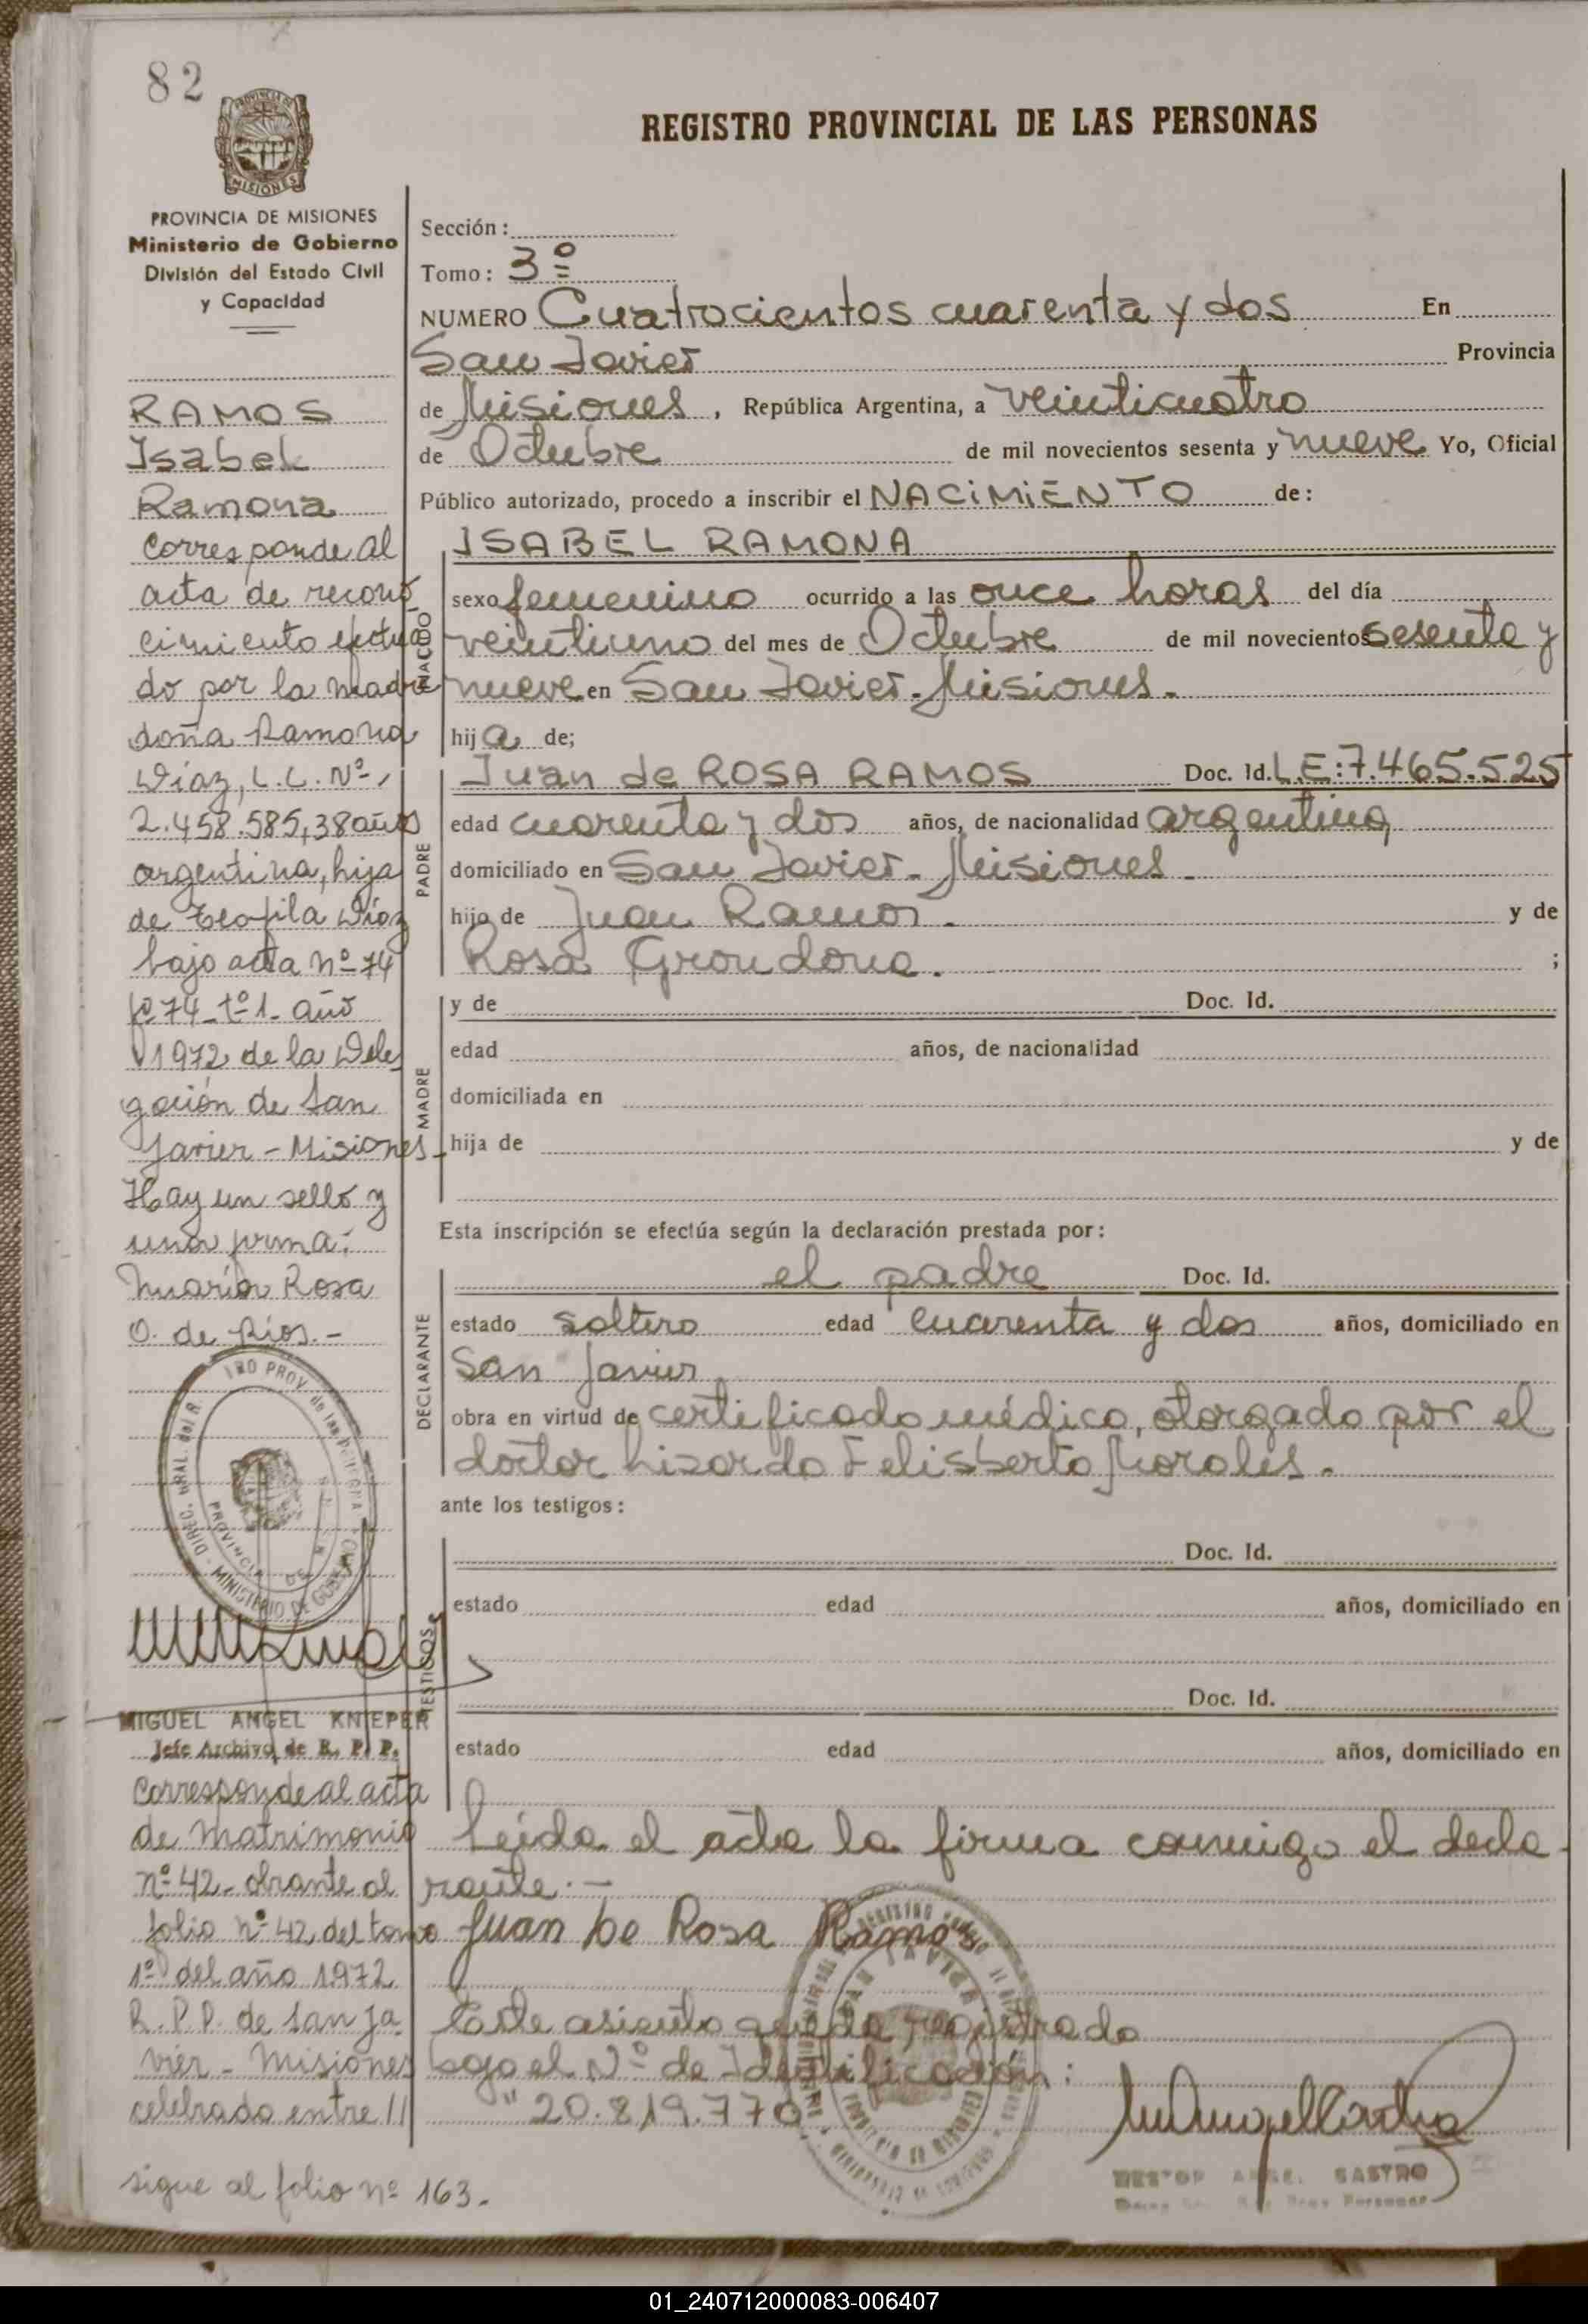 82
REGISTRO PROVINCIAL DE LAS PERSONAS
PROVINCIA DE MISIONES
Ministerio de Gobierno
División del Estado Civil
y Capacidad
RAMOS
Isabel
Ramona
Corresponde al
acta de recono
cimiento efectua
do por la madre
doña Ramona
Díaz, L.C. Nº
2.458.585, 38 años
argentina, hija
de Teofila Díaz
bajo acta nº 74
fº 74 - tº 1 - año
1972 de la Dele
gación de San
Javier - Misiones -
Hay un sello y
una firma:
María Rosa
O. de Ríos. -
MINISTERIO DE GOBIERNO
PROVINCIA DE
MIGUEL ANGEL KNIEPER
Jefe Archivo de R. P. P.
Corresponde al acta
de Matrimonio
nº 42 - obrante al
folio nº 42 del tomo
1º del año 1972
R. P. P. de San Ja
vier - Misiones
celebrado entre //
sigue al folio nº 163.
Sección:
Tomo: 3º
NUMERO Cuatrocientos cuarenta y dos En
San Javier Provincia
de Misiones, República Argentina, a veinticuatro
de Octubre de mil novecientos sesenta y nueve Yo, Oficial
Público autorizado, procedo a inscribir el NACIMIENTO de:
NACIDO
ISABEL RAMONA
sexo femenino ocurrido a las once horas del día
veintiuno del mes de Octubre de mil novecientos sesenta y
nueve en San Javier - Misiones.
hija de;
PADRE
Juan de ROSA RAMOS Doc. Id. L.E: 7.465.525
edad cuarenta y dos años, de nacionalidad argentina
domiciliado en San Javier - Misiones -
hijo de Juan Ramos. y de
Rosa Grondona. ;
MADRE
y de Doc. Id.
edad años, de nacionalidad
domiciliada en
hija de y de
Esta inscripción se efectúa según la declaración prestada por:
DECLARANTE
el padre Doc. Id.
estado soltero edad cuarenta y dos años, domiciliado en
San Javier
obra en virtud de certificado médico, otorgado por el
doctor Lisardo Felisberto Morales.
ante los testigos:
TESTIGOS
Doc. Id.
estado edad años, domiciliado en
Doc. Id.
estado edad años, domiciliado en
Leída el acta la firma conmigo el decla-
rante. -
Juan De Rosa Ramos
Este asiento queda registrado
bajo el Nº de Identificación:
"20.819.770
CASTRO
01_240712000083-006407